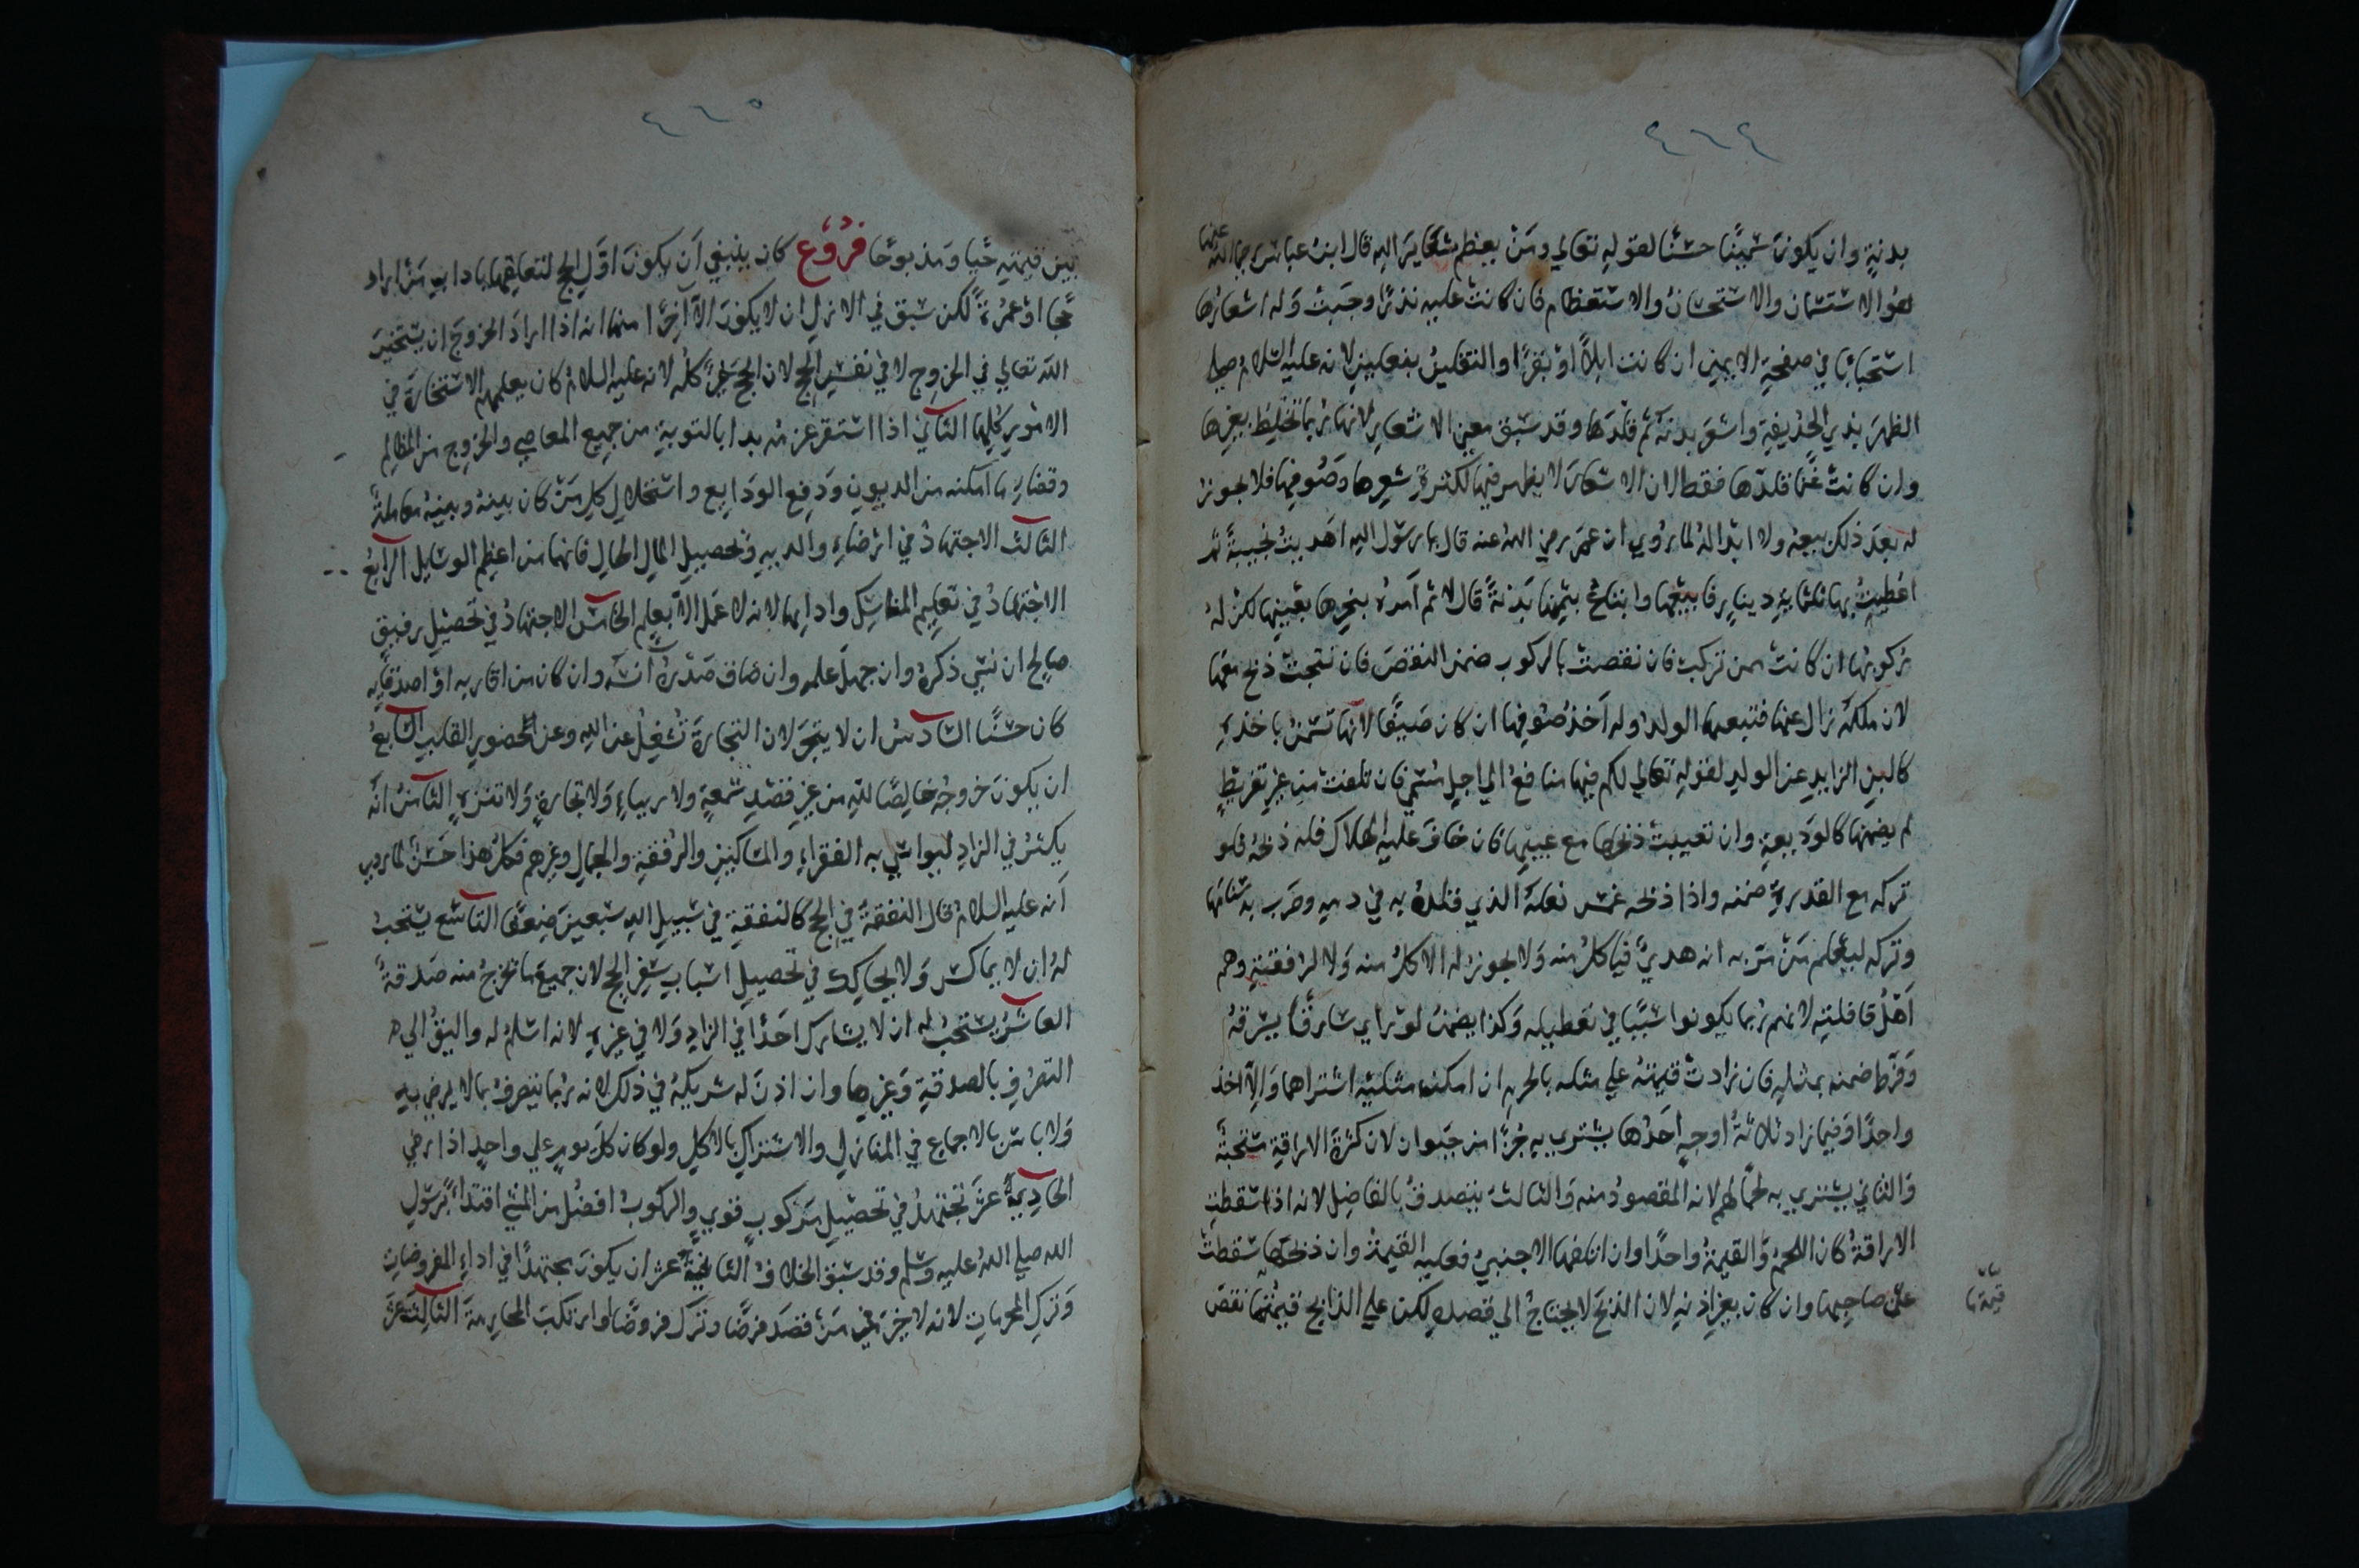 ٤٦٤
بدنةٍ وان يكونَ سمينًا حسنًا لقولهِ تعالي ومَنْ يعظم شعايرَ اللهِ قال ابنُ عباسٍ رضي اللهُ عنهما
هُو الاستسمان والاستحسانُ والاستعظام فان كانتْ عليهِ نذرًا وجَبَتْ وَله اشعارُها
استحبابًا في صفحةِ الايمنِ ان كانت ابلاً اوْ بقرًا والتقليدُ بنعلينِ لانه عليهِ السّلامُ صلي
الظهرَ بذي الحُليفةِ واشعَرَ بدنةً ثم قلّدَها وقد سبق معني الاشعارِ لانها رُبما تختلِطُ بغيرِها
وان كانتْ غنَمًا قلدّها فقط لان الاشعارَ لا يظهر فيها لكثرةِ شعرِها وصُوفِها فلا يجوز
له بعدَ ذلكَ بيعهُ ولا ابدالهُ لما رُوِي ان عمرَ رضي اللهُ عنه قال يا رسُول اللهِ اهديتُ نجيبةً ثم
اُعْطِيتُ بها ثلثمايةِ دينارٍ فابيعُها وابتاعُ بثمنِها بَدنةً قال لا ثم اَمرهُ بنحرِها بعَينِها لكن لهُ
ركوبُها ان كانتْ ممن تركبُ فان نقصتْ بالركوب ضمن النقصَ فان نتجتْ ذبح معَها
لان ملكَهُ زال عنها فتبعها الولدُ وله اَخذُ صُوفِها ان كان صَيفًا لانها تسمَنُ باخذِهِ
كاللبنِ الزايدِ عن الولدِ لقولِهِ تعالي لكم فيها منافعُ الي اجلٍ مسُمّي فان تلفتْ من غيرِ تفريطٍ
لم يضمنها كالودِيعةِ وان تعيبتْ ذبحها مع عيبِها فان خافَ عليهِ الهلاكَ فله ذبحُهُ فلو
تركه مع القدرةِ ضمنه واذا ذبحه غمسَ نعلَهُ الذي قلدهُ به في دمِهِ وضربَ به سنامَها
وتركه ليعْلم مَنْ مرّ به انه هديٌ فياكلُ منه وَلا يجوز له الاكلُ منه وَلا لرفقتِهِ وهم
اَهْلُ قافلتِه لانهم رُبما يكونوا سَبَبًا في تعطِيبِه وَكذا يضمنُ لوْ راي سارقًا يسرقهُ
وَفرّط ضمنه بمثلِهِ فان زادتْ قيمتهُ علي مثله بالحرم ان امكنه مثليْنِ اشتراهما وَالّا اخذ
واحدًا وَفيما زاد ثلاثةُ اوجهٍ احَدُها يشتري به جُزءًا من حَيوان لان كثرةَ الاراقةِ مستحبّةً
وَالثاني يشتري به لحمًا لهم لانه المقصودُ منه وَالثالثُ يتصدقُ بالفاضِلِ لانه اذا سقطتِ
الاراقةُ كان اللحمُ وَالقيمةُ واحدًا وان اتلفها الاجنبيُ فعليهِ القيمةُ وان ذبحها سَقطتْ
علي صاحِبِها وان كان بغيرِ اذنِهِ لان الذبحَ لا يحتاجُ الي قصدٍ لكن علي الذابحِ قيمتُها نقصَ
قيمة ما
٤٦٥
بين قيمتِهِ حَيًّا وَمَذبوحًا فُرُوْع كان ينبغي اَن يكونَ اوّل الحج لتعلقِها بادابِ مَنْ اراد
حجًا اوْ عُمرةً لكن سَبق في الازل ان لا يكونَ الّا اَخِرًا منها انه اذا ارادَ الخروجَ ان يستخيرَ
اللهَ تعالي في الخروجِ لا في نفسِ الحجِ لان الحجَ خيرٌ كلُه لانه عليه السلامُ كان يعلمهم الاستخارَةَ في
الامُورِ كلِها الثاني اذا استقرَ عزمُه بدا بالتوبةِ من جميعِ المعاصي والخروجِ من المظالِم
وقضاءِ ما اَمكنه من الديونِ ودَفعِ الودَايع واستحلالِ كل مَنْ كان بينهُ وبينهُ معاملةٌ
الثالث الاجتهادُ في ارضاءِ والديهِ وتحصيلِ المالِ الحلالِ فانهما من اعظمِ الوسَايل الرابعُ
الاجتهادُ في تعليمِ المناسِكِ وادابِها لانه لا عَمل الاّ بعلمٍ الخامسُ الاجتهادُ في تحصيلِ رفيقٍ
صالحٍ ان نسِي ذكّرهُ وان جَهلَ علمه وان ضاق صَدْرُه انسَه وان كان من اقاربِه اوْ اصدقايِه
كان حسَنًا السادسُ ان لا يتجرَ لان التجارةَ تُشغِلُ عن اللهِ وعن الحضورِ القلبِ السابعُ
ان يكونَ خروجُه خالِصًا للهِ من غيرِ قصْدِ سُمعةٍ ولا رياءٍ وَلا تجارةٍ وَلا تنزهٍ الثامنُ انَه
يكثرُ في الزادِ ليواسِي به الفقراءِ والمسَاكينِ والرفقةِ والجمال وغيرهم فكلُ هذا حَسَنٌ لما روي
اَنه عليه السلامُ قال النفقةُ في الحجِ كالنفقةِ في سَبيلِ اللهِ سَبعينَ ضِعفًا التاسع يستحبُ
لهُ ان لا يماكسَ وَلا يحاكك في تحصيلِ اسْبابِ سفرِ الحجِ لان جميعَ ما يخرجُ منه صَدقةً
العاشرُ يستحبُ له ان لا يشاركَ احَدًا في الزادِ وَلا في غيرهِ لانه اسلمُ له واليقُ الي
التصرُفِ بالصدقةِ وَغيرِها وان اذنَ له شريكهُ في ذلك لانه رُبما يتصرفُ بما لا يرضي به
وَلا باسَ بالاجماعِ في المنازلِ والاشتراكِ بالاكلِ ولو كان كلَ يومٍ علي واحدٍ اذا رضي
الحاديةَ عشرَ تجتهدُ في تحصيلِ مَركوبٍ قويٍ والركوبُ افضلُ من المشي اقتداءً برسُولِ
الله صلي اللهُ عليهِ وسَلم وقد سَبق الخلافُ الثانية عشر ان يكونَ مجتهدًا في اداءِ المفروضاتِ
وَتركِ المحرماتِ لانه لا خيرَ في مَنْ قصَدَ فرضًا وتركَ فروضًا او ارتكبَ المحارمةَ الثالثةَ عشرَ